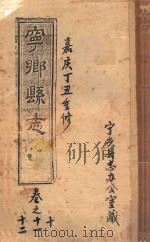 宁乡县志办公室藏
嘉庆丁丑重修
寧鄉縣志
卷之十
十二